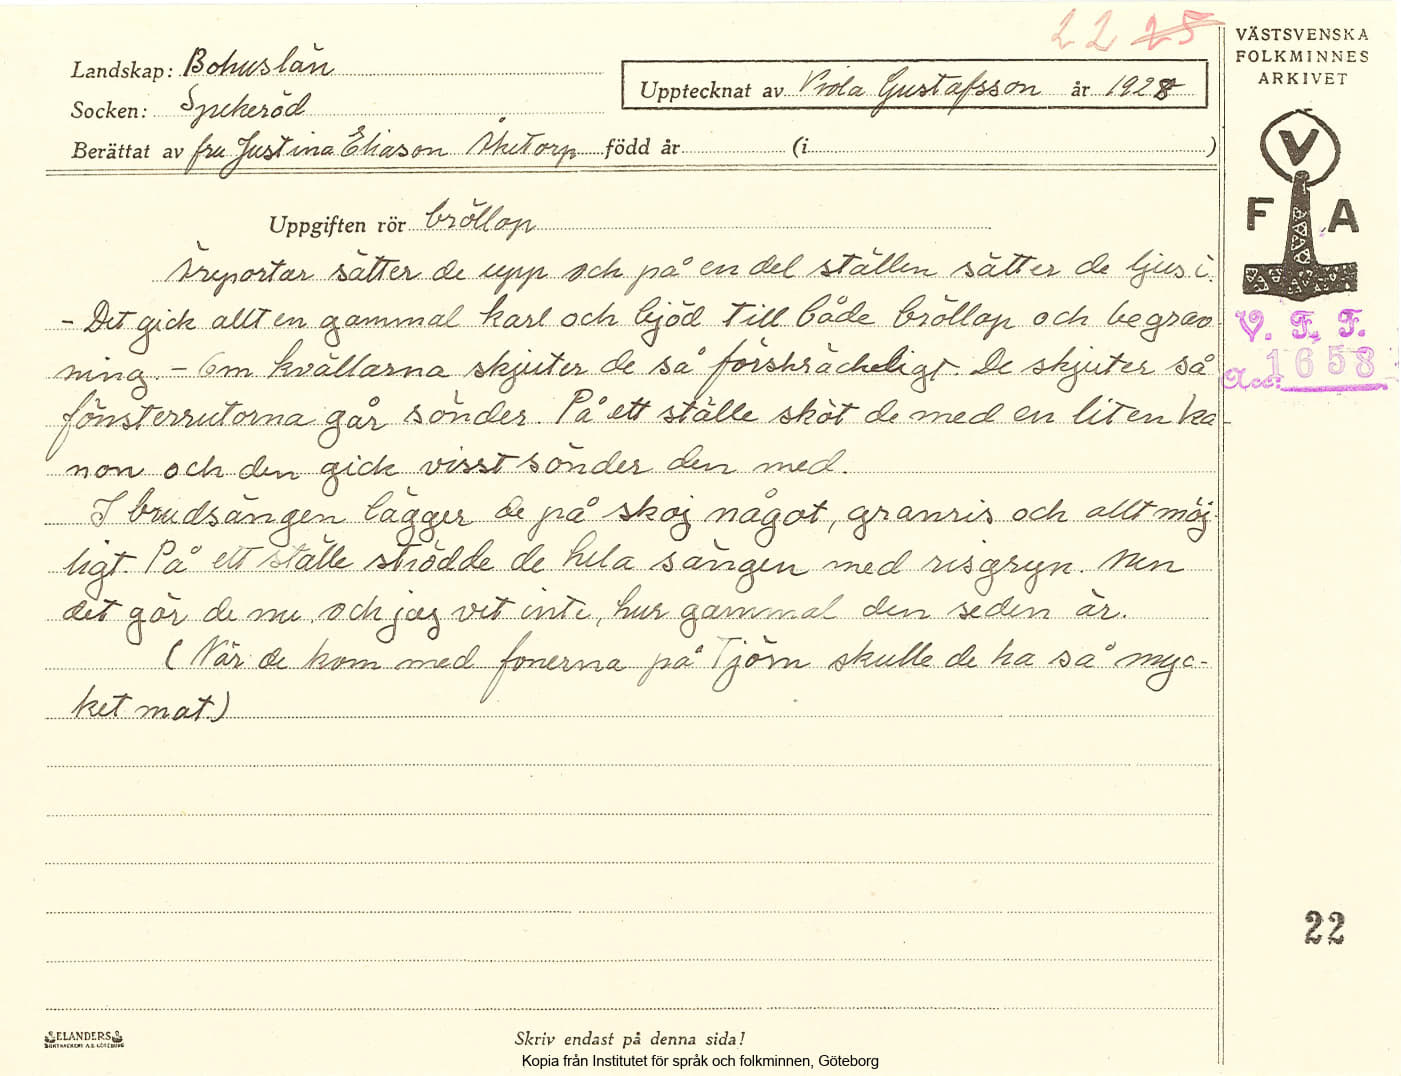 22 25
VÄSTSVENSKA
FOLKMINNES
ARKIVET
Landskap: Bohuslän
Socken: Spekeröd
Upptecknat av Viola Gustafsson år 1928
Berättat av fru Justina Eliason Åketorp född år (i )
V
F A
Uppgiften rör bröllop
Äreportar sätter de upp och på en del ställen sätter de ljus i.
- Det gick allt en gammal karl och bjöd till både bröllop och begrav
ning. - Om kvällarna skjuter de så förskräckeligt. De skjuter så
fönsterrutorna går sönder. På ett ställe sköt de med en liten ka-
non och den gick visst sönder den med.
I brudsängen lägger de på skoj något, granris och allt möj-
ligt. På ett ställe strödde de hela sängen med risgryn. Men
det gör de nu, och jag vet inte, hur gammal den seden är.
(När de kom med fonerna på Tjörn skulle de ha så myc-
ket mat)
V. F. F.
Acc: 1658
22
ELANDERS
BOKTRYCKERI A.B. GÖTEBORG
Skriv endast på denna sida!
Kopia från Institutet för språk och folkminnen, Göteborg